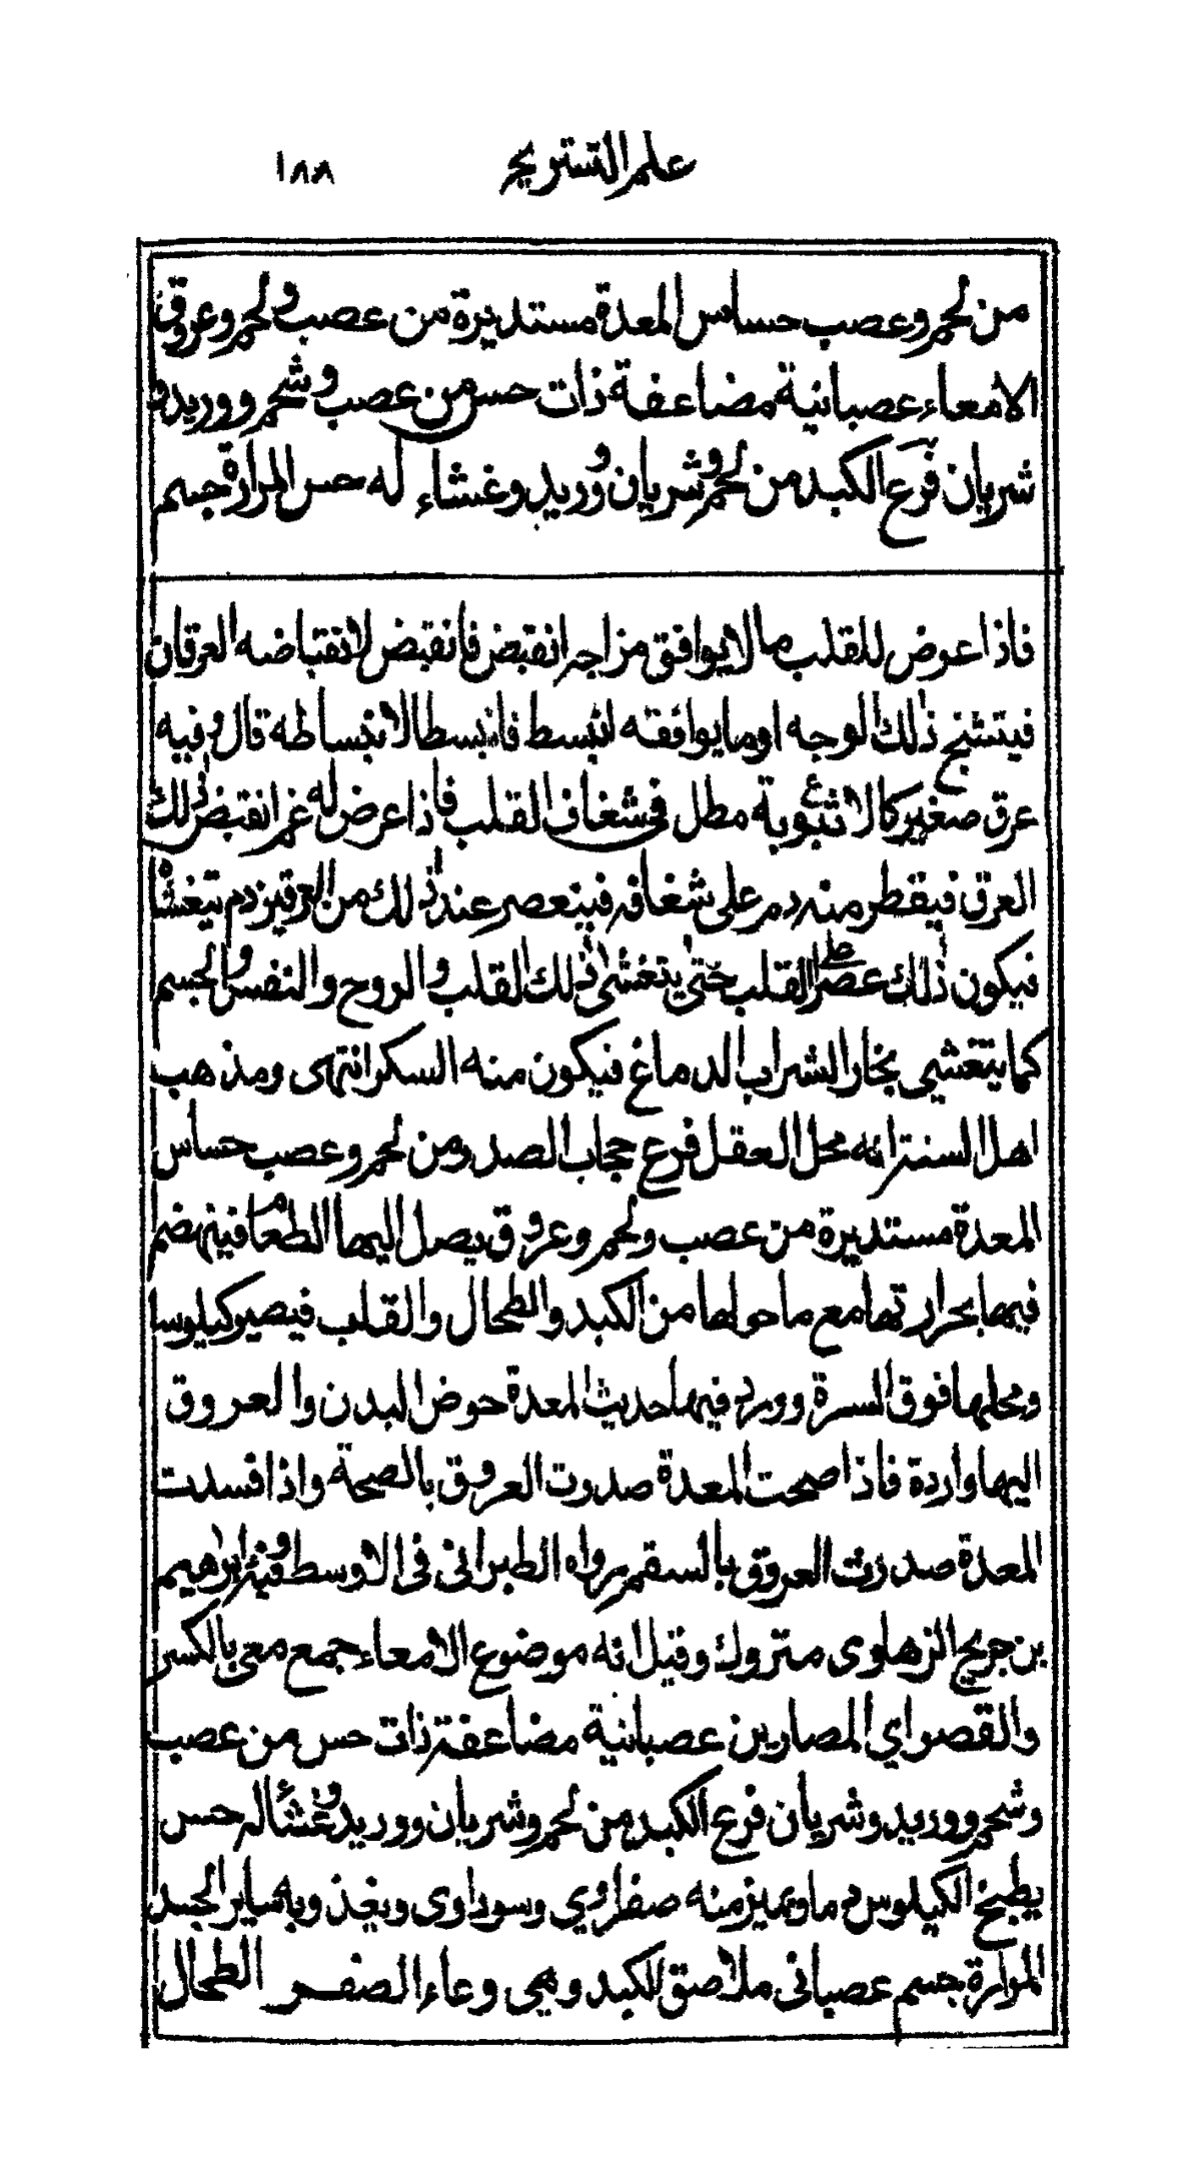 علم التشريح ١٨٨
من لحم وعصب حساس المعدة مستديرة من عصب ولحم وعروق
الامعاء عصبانية مضاعفة ذات حس من عصب وشحم ووريد و
شريان فرع الكبد من لحم وشريان ووريد وغشاء له حس المرارة جسم
فاذا عرض للقلب ما لا يوافق مزاجه انقبض فانقبض لانقباضه العرقان
فيتشنج ذلك الوجه او ما يوافقه انبسط فانبسطا لانبساطه قال وفيه
عرق صغير كالانبوبة مطل فى شغاف القلب فاذا عرض له غم انقبض ذلك
العرق فيقطر منه دم على شغافه فينعصر عند ذلك من العرقين دم يتغشاه
فيكون ذلك عصرا على القلب حتى يتغشى ذلك القلب والروح والنفس والجسم
كما يتغشى بخار الشراب الدماغ فيكون منه السكر انتهى ومذهب
اهل السنة انه محل العقل فرع حجاب الصدر ومن لحم وعصب حساس
المعدة مستديرة من عصب ولحم وعروق يصل اليها الطعام فينهضم
فيها بحرارتها مع ما حولها من الكبد والطحال والقلب فيصير كيلوسا
ومحلها فوق السرة وورد فيها حديث المعدة حوض البدن والعروق
اليها واردة فاذا صحت المعدة صدرت العروق بالصحة واذا فسدت
المعدة صدرت العروق بالسقم رواه الطبرانى فى الاوسط وفيه ابراهيم
بن جريج الزهاوى متروك وقيل انه موضوع الامعاء جمع معى بالكسر
والقصر اي المصارين عصبانية مضاعفة ذات حس من عصب
وشحم ووريد وشريان فرع الكبد من لحم وشريان ووريد وغشا له حس
يطبخ الكيلوس دما ويميز منه صفراوي وسوداوى ويغذوبه ساير الجسد
المرارة جسم عصبانى ملاصق للكبد وهى وعاء الصفر الطحال